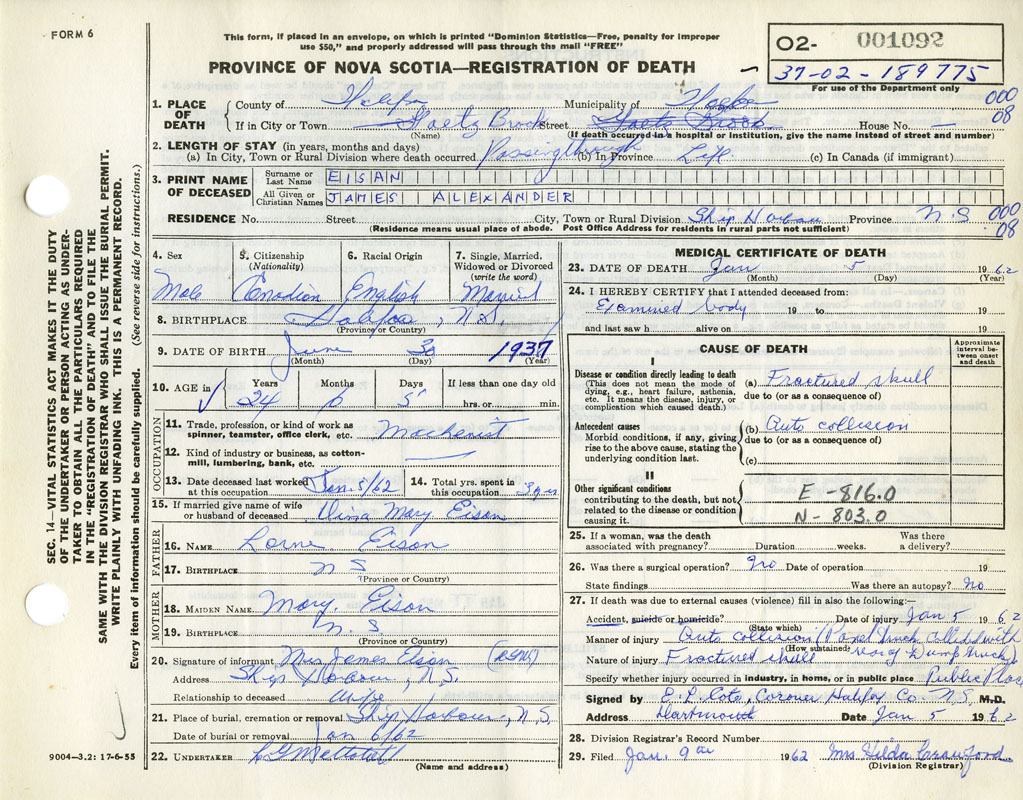 FORM 6
This form, if placed in an envelope, on which is printed "Dominion Statistics—Free, penalty for improper
use $50," and properly addressed will pass through the mail "FREE"
PROVINCE OF NOVA SCOTIA—REGISTRATION OF DEATH
02- 001092
37-02-189775
For use of the Department only
1. PLACE OF DEATH County of Halifax Municipality of Halifax 000
If in City or Town Gaetz Brook Street Gaetz Brook House No. — 08
(Name) (If death occurred in a hospital or institution, give the name instead of street and number)
2. LENGTH OF STAY (in years, months and days)
(a) In City, Town or Rural Division where death occurred Passing through (b) In Province Life (c) In Canada (if immigrant)
3. PRINT NAME OF DECEASED
Surname or Last Name EISAN
All Given or Christian Names JAMES ALEXANDER
RESIDENCE No. Street City, Town or Rural Division Ship Harbour Province N S 000
(Residence means usual place of abode. Post Office Address for residents in rural parts not sufficient) 08
4. Sex 5. Citizenship (Nationality) 6. Racial Origin 7. Single, Married, Widowed or Divorced (write the word)
Male Canadian English Married
8. BIRTHPLACE Halifax, N.S.
(Province or Country)
9. DATE OF BIRTH June 30 1937
(Month) (Day)
10. AGE in Years Months Days If less than one day old
24 6 5 hrs. or min.
OCCUPATION
11. Trade, profession, or kind of work as spinner, teamster, office clerk, etc. Machinist
12. Kind of industry or business, as cotton-mill, lumbering, bank, etc. —
13. Date deceased last worked at this occupation Jan 5/62 14. Total yrs. spent in this occupation 3 yrs
15. If married give name of wife or husband of deceased Mary Eisan
FATHER
16. NAME Lorne Eisan
17. BIRTHPLACE N S
(Province or Country)
MOTHER
18. MAIDEN NAME Mary Eisan
19. BIRTHPLACE N. S.
(Province or Country)
20. Signature of informant Mrs James Eisan
Address Ship Harbour, N.S.
Relationship to deceased Wife
21. Place of burial, cremation or removal Ship Harbour, N.S.
Date of burial or removal Jan 6/62
22. UNDERTAKER
(Name and address)
MEDICAL CERTIFICATE OF DEATH
23. DATE OF DEATH Jan 5 1962
(Month) (Day) (Year)
24. I HEREBY CERTIFY that I attended deceased from:
Examined body 19 to 19
and last saw h alive on 19
CAUSE OF DEATH
Approximate interval between onset and death
I
Disease or condition directly leading to death (a) Fractured skull
(This does not mean the mode of dying, e.g., heart failure, asthenia, etc. It means the disease, injury, or complication which caused death.) due to (or as a consequence of)
Antecedent causes (b) Auto collision
Morbid conditions, if any, giving rise to the above cause, stating the underlying condition last. due to (or as a consequence of)
(c)
II
Other significant conditions contributing to the death, but not related to the disease or condition causing it.
E-816.0
N-803.0
25. If a woman, was the death associated with pregnancy? Duration weeks. Was there a delivery?
26. Was there a surgical operation? No Date of operation 19
State findings Was there an autopsy? No
27. If death was due to external causes (violence) fill in also the following:—
Accident, suicide or homicide? Date of injury Jan 5 1962
(State which)
Manner of injury Auto collision (Panel truck collided with
(How sustained) rear of Dump truck)
Nature of injury Fractured skull
Specify whether injury occurred in industry, in home, or in public place Public Place
Signed by E. P. Cote, Coroner Halifax Co N.S. M.D.
Address Dartmouth Date Jan 5 1962
28. Division Registrar's Record Number
29. Filed Jan. 9th 1962 Mrs Hilda Crawford
(Division Registrar)
SEC. 14—VITAL STATISTICS ACT MAKES IT THE DUTY
OF THE UNDERTAKER OR PERSON ACTING AS UNDER-
TAKER TO OBTAIN ALL THE PARTICULARS REQUIRED
IN THE "REGISTRATION OF DEATH" AND TO FILE THE
SAME WITH THE DIVISION REGISTRAR WHO SHALL ISSUE THE BURIAL PERMIT.
WRITE PLAINLY WITH UNFADING INK. THIS IS A PERMANENT RECORD.
Every item of information should be carefully supplied. (See reverse side for instructions.)
9004—3.2: 17-6-55